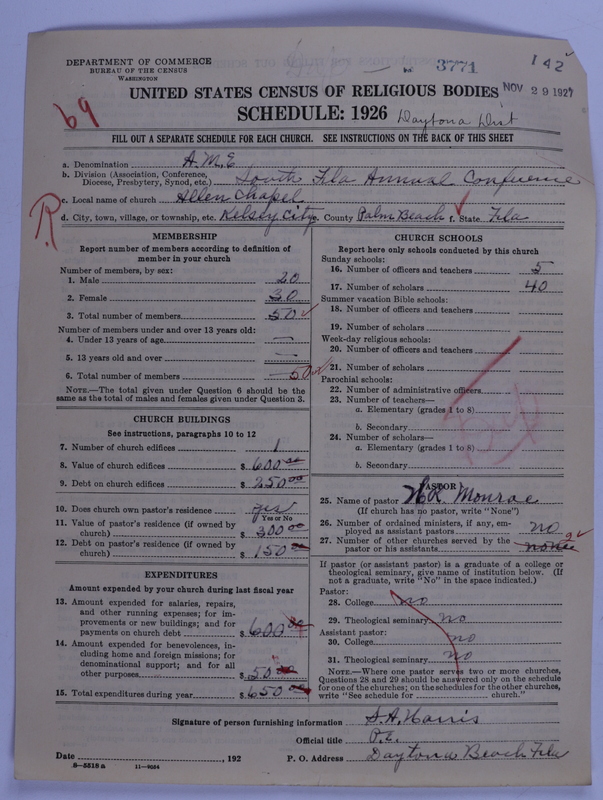 DEPARTMENT OF COMMERCE
BUREAU OF THE CENSUS
WASHINGTON
3771
142
UNITED STATES CENSUS OF RELIGIOUS BODIES
NOV 29 1927
SCHEDULE: 1926
Daytona Dist
69
FILL OUT A SEPARATE SCHEDULE FOR EACH CHURCH. SEE INSTRUCTIONS ON THE BACK OF THIS SHEET
a. Denomination A.M.E
b. Division (Association, Conference,
Diocese, Presbytery, Synod, etc.) South Fla Annual Conference
c. Local name of church Allen Chapel
R
d. City, town, village, or township, etc. Kelsey City e. County Palm Beach f. State Fla
MEMBERSHIP
Report number of members according to definition of
member in your church
Number of members, by sex:
1. Male 20
2. Female 30
3. Total number of members 50
Number of members under and over 13 years old:
4. Under 13 years of age —
5. 13 years old and over —
6. Total number of members 50
NOTE.—The total given under Question 6 should be the
same as the total of males and females given under Question 3.
CHURCH BUILDINGS
See instructions, paragraphs 10 to 12
7. Number of church edifices 1
8. Value of church edifices $ 600.00
9. Debt on church edifices $ 250.00
10. Does church own pastor's residence yes
Yes or No
11. Value of pastor's residence (if owned by
church) $ 300.00
12. Debt on pastor's residence (if owned by
church) $ 150.00
EXPENDITURES
Amount expended by your church during last fiscal year
13. Amount expended for salaries, repairs,
and other running expenses; for im-
provements or new buildings; and for
payments on church debt $ 600.00
14. Amount expended for benevolences, in-
cluding home and foreign missions; for
denominational support; and for all
other purposes $ 50.00
15. Total expenditures during year $ 650.00
CHURCH SCHOOLS
Report here only schools conducted by this church
Sunday schools:
16. Number of officers and teachers 5
17. Number of scholars 40
Summer vacation Bible schools:
18. Number of officers and teachers
19. Number of scholars
Week-day religious schools:
20. Number of officers and teachers
21. Number of scholars
Parochial schools:
22. Number of administrative officers
23. Number of teachers—
a. Elementary (grades 1 to 8)
b. Secondary
24. Number of scholars—
a. Elementary (grades 1 to 8)
b. Secondary
PASTOR
25. Name of pastor Monroe
(If church has no pastor, write "None")
26. Number of ordained ministers, if any, em-
ployed as assistant pastors no
27. Number of other churches served by the
pastor or his assistants none
If pastor (or assistant pastor) is a graduate of a college or
theological seminary, give name of institution below. (If
not a graduate, write "No" in the space indicated.)
Pastor:
28. College no
29. Theological seminary no
Assistant pastor:
30. College no
31. Theological seminary no
NOTE.—Where one pastor serves two or more churches,
Questions 28 and 29 should be answered only on the schedule
for one of the churches; on the schedules for the other churches,
write "See schedule for church."
Signature of person furnishing information S.A. Harris
Official title P.E.
Date , 192 P. O. Address Daytona Beach Fla
8—5518 a 11—9054